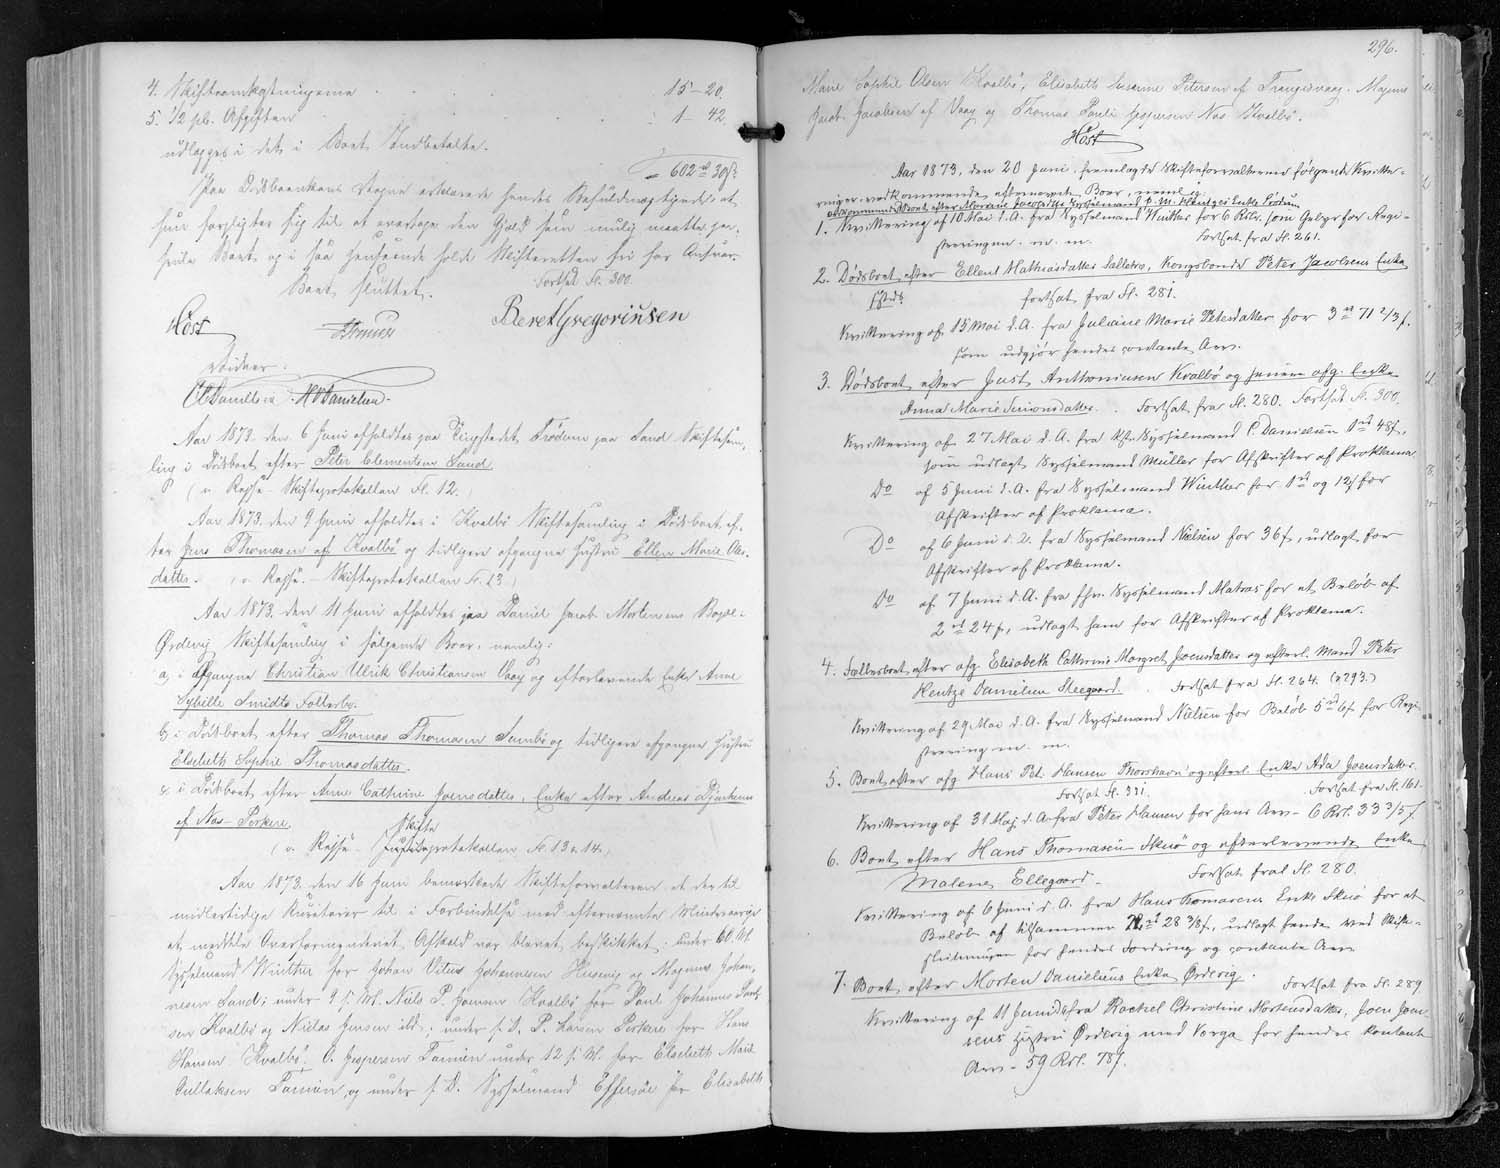 4. Skifteomkostningerne . . . 15 – 20.
5. 1/2 pCt. Afgiften . . . 1 – 42.
udlægges i det i Boet Indbetalte.
= 602 rd 30 ß
Paa Lodsbankens Vegne erklærede hendes Befuldmægtigede at
hun forpligter sig til at overtage den Gjæld som mulig maatte paa-
hvile Boet og i saa Henseende holde Skifteretten fri for Ansvar.
Boet sluttet. Fortsat Fl. 300.
Høst Beret Gregoriusen
Vidner:
O C Danielsen H P Danielsen.
Aar 1873 den 6 Juni afholdtes paa Thingstedet Trødum paa Sand Skiftesam-
ling i Dødsboet efter Peter Clementsen Sand.
(v. Rejse-Skifteprotokollen Fl. 12.)
Aar 1873 den 9 Juni afholdtes i Kvalbø Skiftesamling i Dødsboet ef-
ter Jens Thomasen af Kvalbø og tidligere afgangne Hustru Ellen Marie Ols-
datter. (v. Rejse-Skifteprotokollen Fl. 13.)
Aar 1873 den 11 Juni afholdtes paa Daniel Jacob Mortensens Bopæl i
Ørdevig Skiftesamling i følgende Boer, nemlig:
a, i afgangne Christian Ulrik Christiansen Vaag og efterlevende Enke Anne
Sybille Smidts Fællesbo.
b, i Dødsboet efter Thomas Thomasen Sumbø og tidligere afgangne Hustru
Elsebeth Sophie Thomasdatter.
c, i Dødsboet efter Anne Cathrine Joensdatter, Enke efter Andreas Djurhuus
af Næs-Porkere.
Skifte
(v. Rejse-Justitsprotokollen Fl. 13 & 14.)
Aar 1873 den 16 Juni bemærkede Skifteforvalteren at der til
midlertidige Kuratorer til i Forbindelse med efternævnte Mindreaarige
at meddele Overformynderiet Afkald var blevet beskikket: under
Sysselmand Winther for Johan Vitus Johannesen Husevig og Magnus Johan-
nesen Sand; under 9 s. M. Niels P. Jensen Kvalbø for Poul Johannes Poul-
sen Kvalbø og Niclas Jensen ibd.; under s. D. P. Larsen Porkere for Hans
Hansen Kvalbø. O. Jespersen Famien under 12 s. M. for Elsebeth Marie
Gullaksen Famien, og under s. D. Sysselmand Effersøe for Elisabeth
296.
Marie Sophie Olsen Kvalbø, Elisabeth Susanne Petersen af Trangisvaag, Magnus
Jacob Jacobsen af Vaag og Thomas Pauli Jespersen Næs Kvalbø.
Høst
Aar 1873, den 20 Juni, fremlagde Skifteforvalteren følgende Kvitte-
ringer vedkommende efternævnte Boer, nemlig:
1. Kvittering af 10 Mai d. A. fra Sysselmand Winther for 6 Rdl. som Gebyr for Regi-
streringen m. m. Fortsat fra Fl. 261.
2. Dødsboet efter Ellene Mathiasdatter Saltnes, Kongsbonde Peter Jacobsens Enke
ibds. fortsat fra Fl. 281.
Kvittering af 15 Mai d. A. fra Juliane Marie Petersdatter for 3 rd 71 2/3 ß.
som udgjør hendes contante Arv.
3. Dødsboet efter Just Anthoniusen Kvalbø og senere afg. Enke
Anna Marie Simonsdatter. Fortsat fra Fl. 280. Fortsat Fl. 300.
Kvittering af 27 Mai d. A. fra Kst. Sysselmand C. Danielsen 1 rd 48 ß,
som udlagt Sysselmand Müller for Afskrifter af Proklama.
Do af 5 Juni d. A. fra Sysselmand Winther for 1 rd og 12 ß for
Afskrifter af Proklama.
Do af 6 Juni d. A. fra Sysselmand Nielsen for 36 ß, udlagt for
Afskrifter af Proklama.
Do af 7 Juni d. A. fra fhv. Sysselmand Matras for et Beløb af
2 rd 24 ß, udlagt ham for Afskrifter af Proklama.
4. Fællesboet efter afg. Elisabeth Cathrine Margret Joensdatter og efterl. Mand Peter
Hentze Danielsen Steegaard. Fortsat fra Fl. 264. (& 293.)
Kvittering af 29 Mai d. A. fra Sysselmand Nielsen for Beløb 5 rd 6 ß for Regi-
strering m. m.
5. Boet efter afg. Hans Pet. Hansen Thorshavn og efterl. Enke Ada Joensdatter.
Fortsat Fl. 331. Fortsat fra Fl. 161.
Kvittering af 31 Maj d. A. fra Peter Hansen for hans Arv – 6 Rdl. 33 3/5 ß
6. Boet efter Hans Thomasen Skuø og efterlevende Enke
Malene Ellegaard. Fortsat fra Fl. 280.
Kvittering af 6 Juni d. A. fra Hans Thomasens Enke Skuø for et
Beløb af tilsammen 28 3/8 ß, udlagt hende ved Skifte-
slutningen for hendes Fordring og contante Arv
7. Boet efter Morten Danielsens Enke Ørdevig. Fortsat fra Fl. 289
Kvittering af 11 Juni ds fra Rachel Christine Mortensdatter, Joen Joen-
sens Hustru Ørdevig med Værge for hendes kontante
Arv – 59 Rdl. 78 ß.